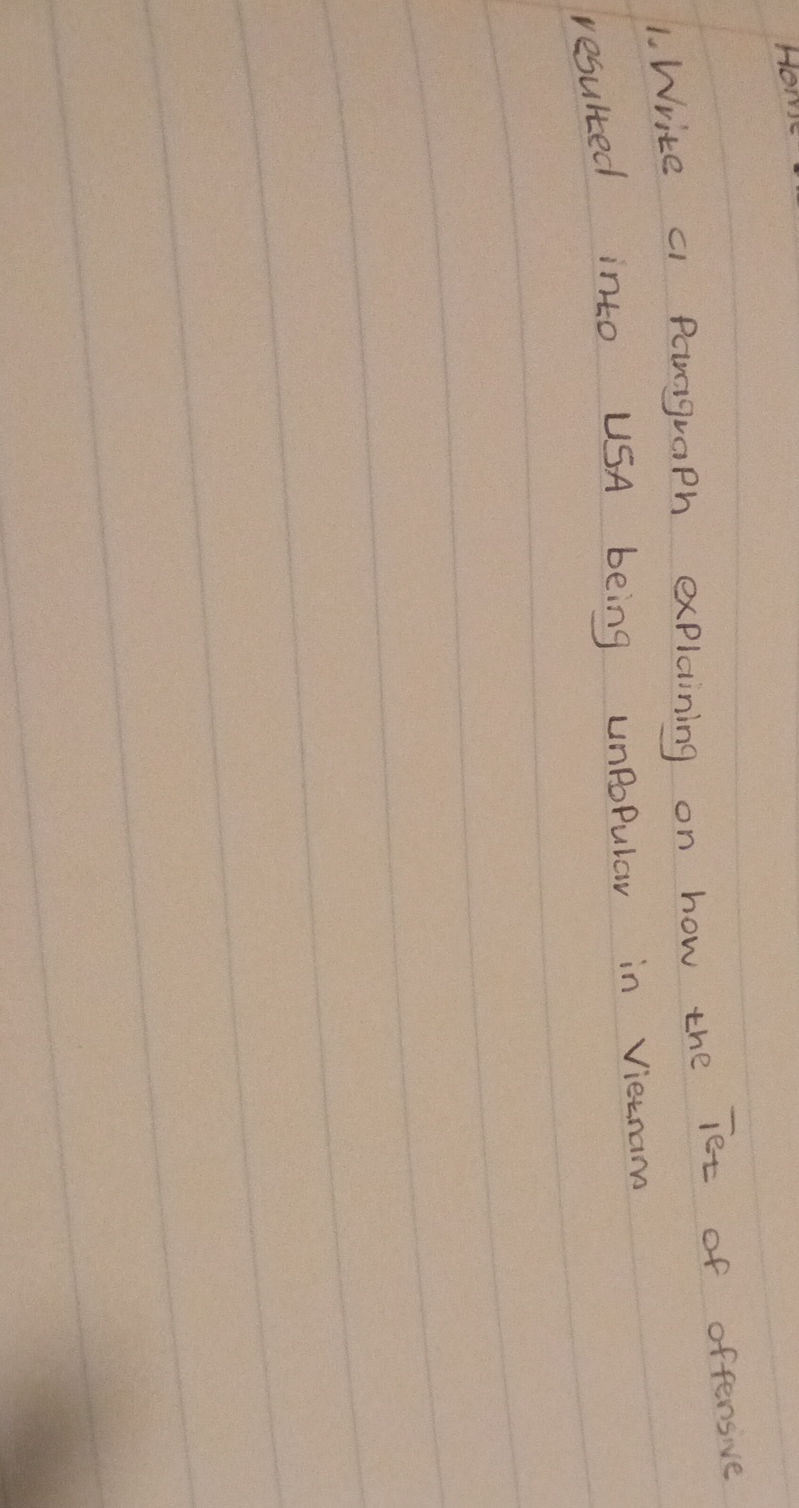 1. Write a Paragraph explaining on how the Tet of offensive
resulted into USA being unPoPular in Vietnam